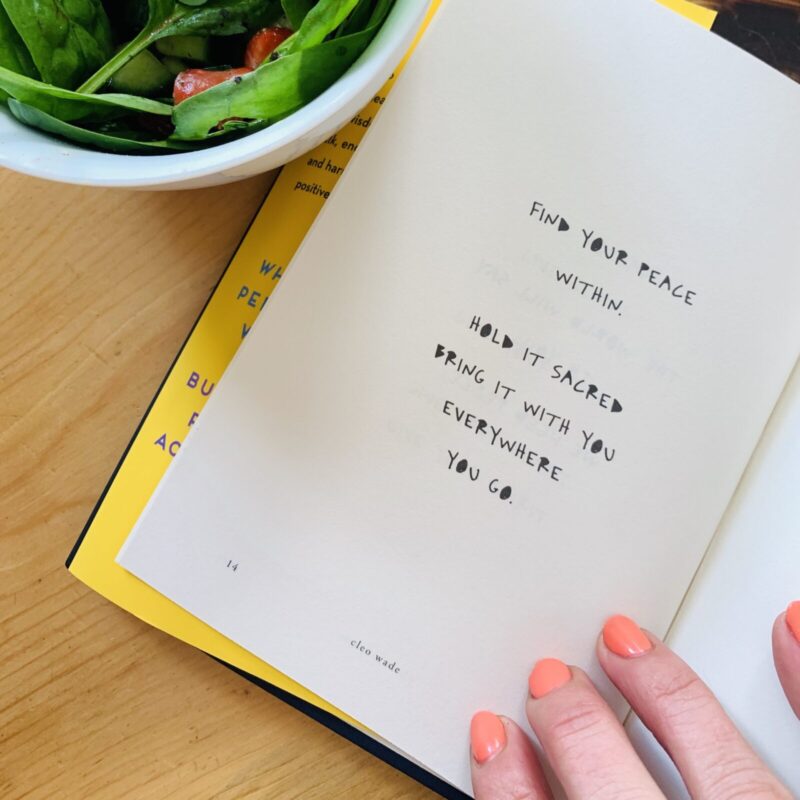 and har
positive
WH
PE
BU
AC
FIND YOUR PEACE
WITHIN.
HOLD IT SACRED
BRING IT WITH YOU
EVERYWHERE
YOU GO.
14
cleo wade